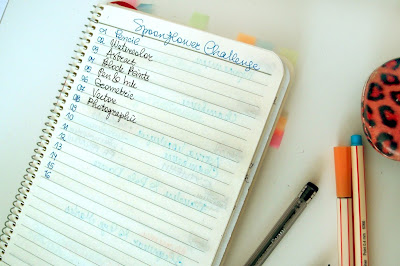 Spoonflower Challenge
01 Pencil
02 Watercolor
03 Astract
04 Block Prints
05 Pen & Ink
06 Geometric
07 Vector
08 Photographic
09
10
11
12
13
14
15
16